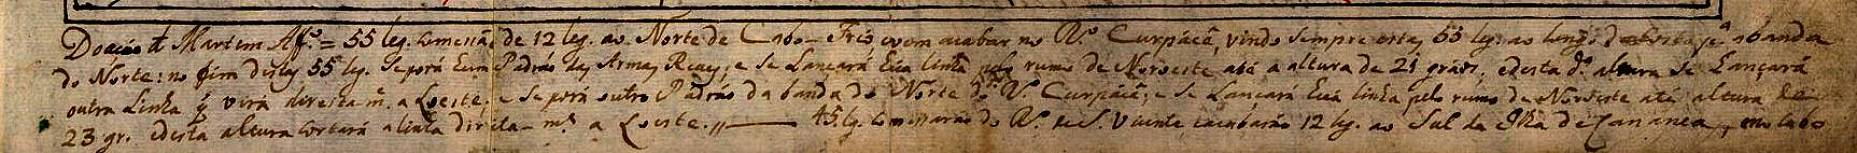 Doação de Martim Aff.º = 55 leg. começão de 12 leg. ao Norte de Cabo-Frio vom acabar no R.º Curpácê, vindo sempre estas 55 leg: ao longo da Costa p.ª a banda
do Norte: no fim destas 55 lg. Se porá hum Padrão das Armas Reaes, e se Lançará hũa linha pelo rumo de Noroeste até a altura de 21 gráos, e desta d.ª altura se Lançará
outra Linha q̃ virá direita m.te a Loeste. e se porá outro Padrão da banda do Norte do R.º Curpácê, e se Lançará hũa linha pelo rumo de Noroeste até altura de
23 gr. e desta altura cortará a linha direita-m.te a Loeste.,, —— 45 lg. começarão do R.º de S. Vicente, e acabarão 12 lg. ao Sul da Ilha de Cananea, no cabo